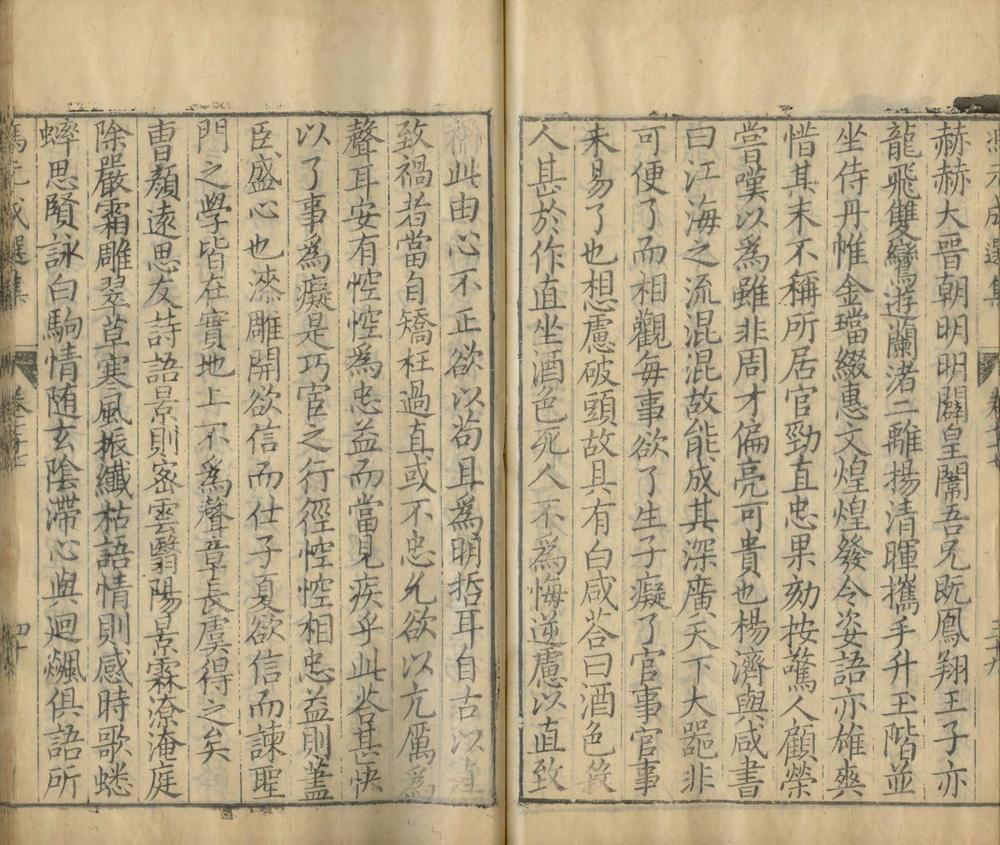 馮元成選集 卷
赫赫大晉朝明明闢皇闈吾兄既鳳翔王子亦
龍飛雙鸞遊蘭渚二離揚清暉攜手升玉階並
坐侍丹帷金璫綴惠文煌煌發令姿語亦雄爽
惜其末不稱所居官勁直忠果劾按驚人顧榮
嘗嘆以為雖非周才偏亮可貴也楊濟與咸書
曰江海之流混混故能成其深廣天下大噐非
可便了而相觀每事欲了生子癡了官事官事
未易了也想慮破頭故具有白咸荅曰酒色殺
人甚於作直坐酒色死人不為悔逆慮以直致
禍此由心不正欲以苟且為明哲耳自古以直
致禍者當自矯枉過直或不忠允欲以亢厲為
聲耳安有悾悾為忠益而當見疾乎此荅甚快
以了事為癡是巧宦之行徑悾悾相忠益則藎
臣盛心也漆雕開欲信而仕子夏欲信而諫聖
門之學皆在實地上不為聲韋長虞得之矣
曹顏遠思友詩語景則密雲翳陽景霖潦淹庭
除嚴霜雕翠草寒風振纖枯語情則感時歌蟋
蟀思賢詠白駒情随玄陰滯心與迴飈俱語所
馮元成選集 卷 四十